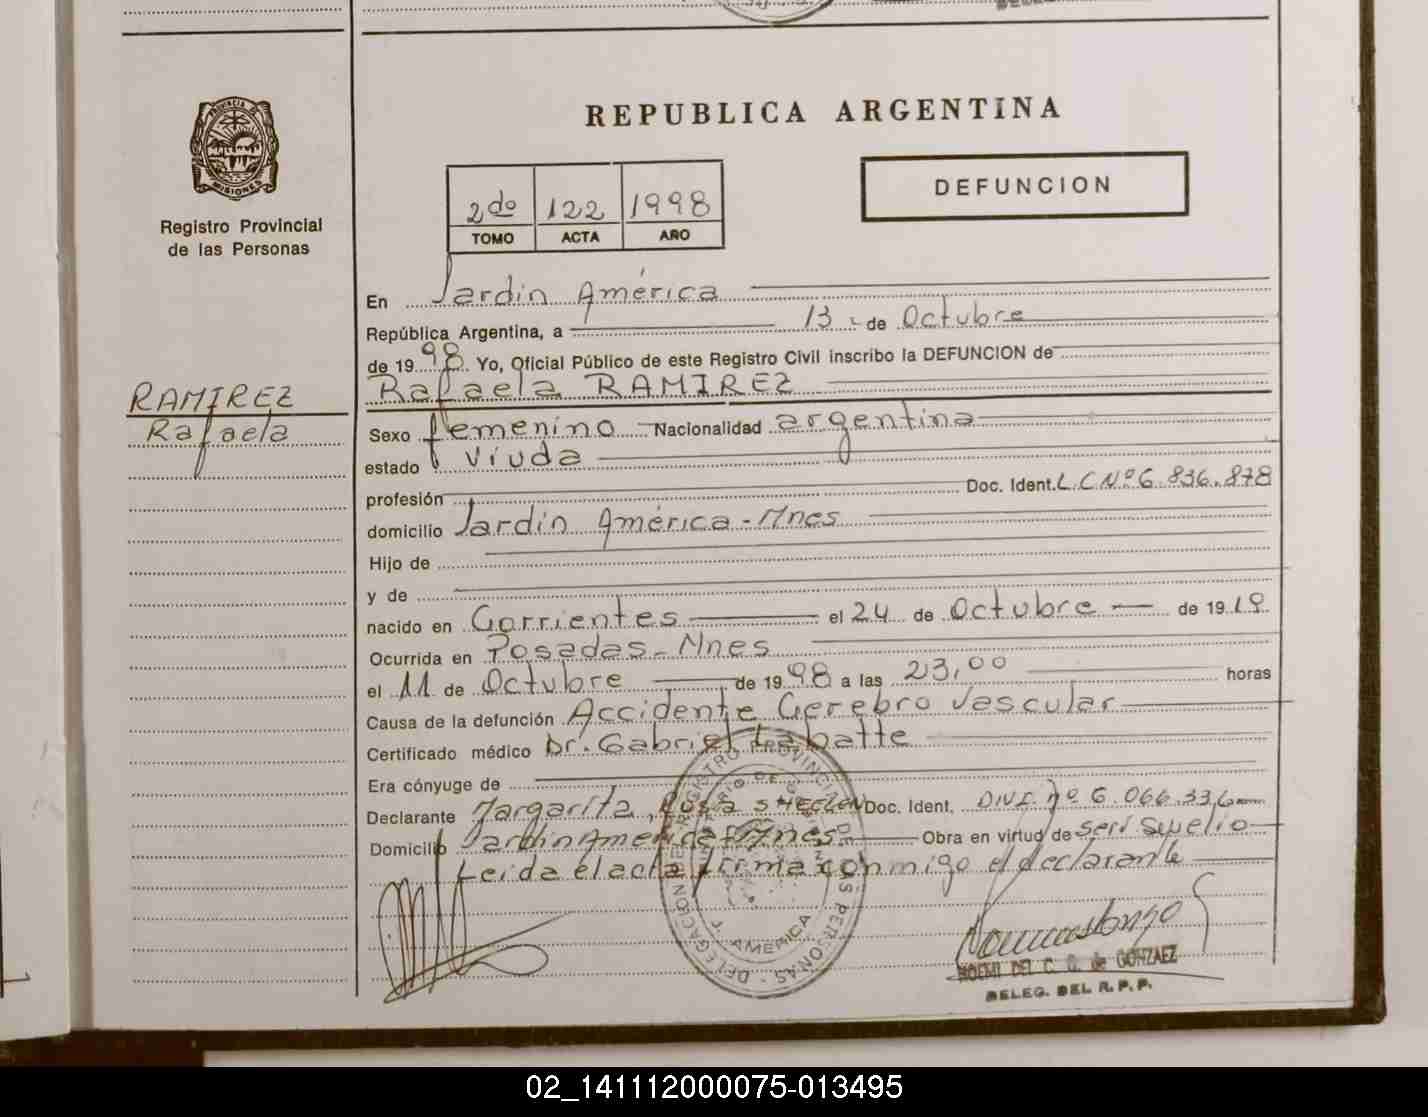 REPUBLICA ARGENTINA
PROVINCIA DE
MISIONES
Registro Provincial
de las Personas
2do 122 1998
TOMO ACTA AÑO
DEFUNCION
En Jardin América
República Argentina, a 13 de Octubre
de 1998 Yo, Oficial Público de este Registro Civil inscribo la DEFUNCION de
Rafaela RAMIREZ
RAMIREZ
Rafaela
Sexo femenino Nacionalidad argentina
estado viuda
profesión Doc. Ident. L.C Nº 6.836.878
domicilio Jardín América - Mnes
Hijo de
y de
nacido en Corrientes el 24 de Octubre de 1919
Ocurrida en Posadas - Mnes
el 11 de Octubre de 1998 a las 23,00 horas
Causa de la defunción Accidente Cerebro Vascular
Certificado médico Dr. Gabriel Labatte
Era cónyuge de
Declarante Margarita, Rosa Doc. Ident. DNI. nº 6.066.336
Domicilio Jardin America Mnes Obra en virtud de
Leida el acta firma conmigo el declarante
REGISTRO PROVINCIAL DE LAS PERSONAS - DELEGACION
J. AMERICA
NOEMI DEL C. G. de GONZAEZ
DELEG. DEL R. P. P.
02_141112000075-013495